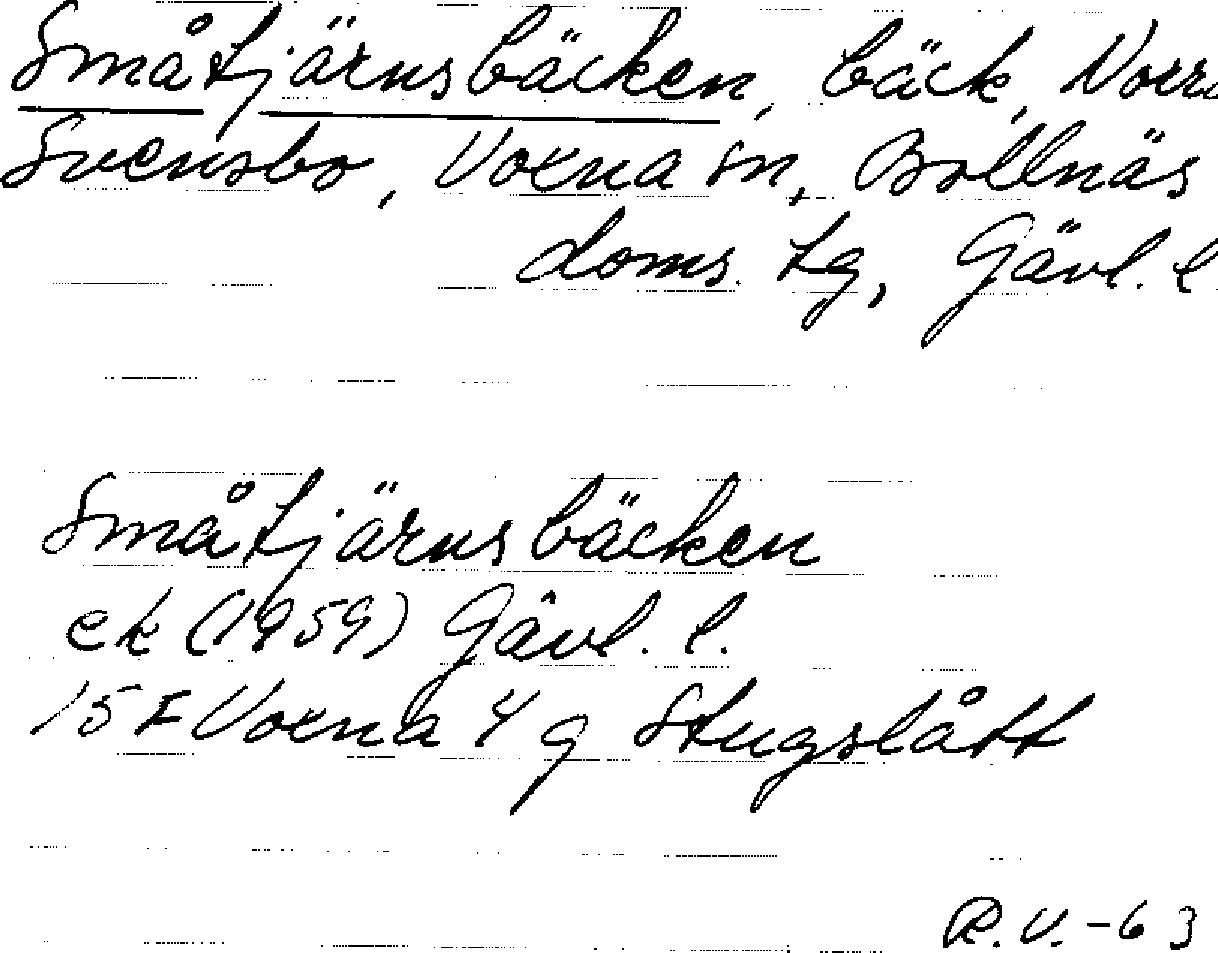 Småtjärnsbäcken, bäck, Norra
Svensbo, Voxna sn, Bollnäs
doms. tg, Gävl. l
Småtjärnsbäcken
ek (1959) Gävl. l.
15 F Voxna 4 g Stugslått
R.V.-63